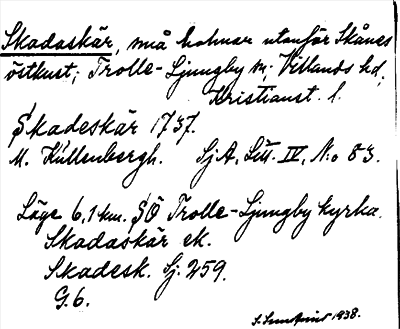 Skadaskär, små holmar utanför Skånes
östkust; Trolle-Ljungby sn; Villands hd,
Kristianst. l.
Skadeskär 1737.
M. Kullenbergh. SjA, Litt. IV, No 83.
Läge 6,1 km. SÖ Trolle-Ljungby kyrka.
Skadaskär ek.
Skadesk. Sj. 259.
G. 6.
1938.